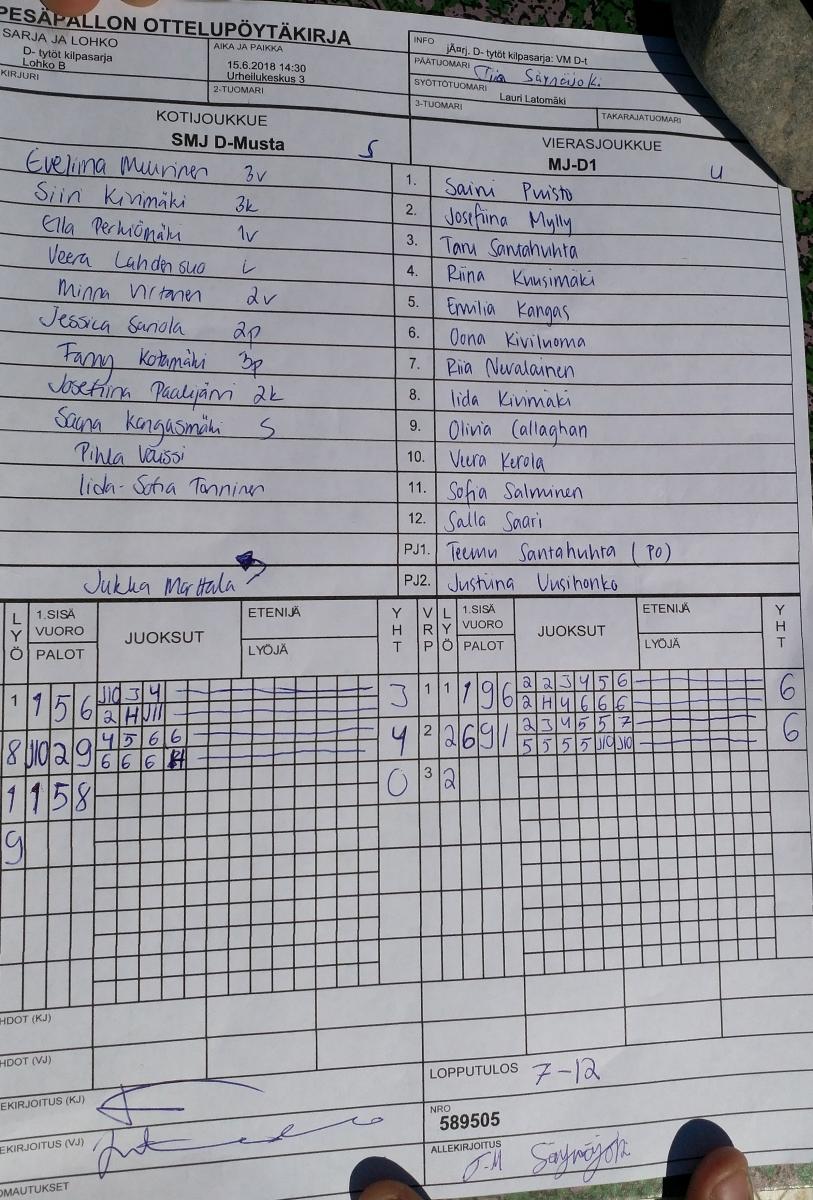 PESÄPALLON OTTELUPÖYTÄKIRJA
SARJA JA LOHKO
D- tytöt kilpasarja
Lohko B
KIRJURI
AIKA JA PAIKKA
15.6.2018 14:30
Urheilukeskus 3
2-TUOMARI
INFO
jÄ¤rj. D- tytöt kilpasarja: VM D-t
PÄÄTUOMARI Tiia Säynäjoki
SYÖTTÖTUOMARI Lauri Latomäki
3-TUOMARI
TAKARAJATUOMARI
KOTIJOUKKUE
SMJ D-Musta S
VIERASJOUKKUE
MJ-D1 U
Eveliina Muurinen 3v
1. Saini Puisto
Siiri Kivimäki 3k
2. Josefiina Mylly
Ella Perkiömäki 1v
3. Taru Santahuhta
Veera Lahdensuo L
4. Riina Kuusimäki
Minna Virtanen 2v
5. Emilia Kangas
Jessica Sariola 2p
6. Oona Kiviluoma
Fanny Kotamäki 3p
7. Riia Nevalainen
Josefiina Paalijärvi 2k
8. Iida Kivimäki
Saana Kangasmäki S
9. Olivia Callaghan
Pihla Väissi
10. Veera Kerola
Iida-Sofia Tanninen
11. Sofia Salminen
12. Salla Saari
PJ1. Teemu Santahuhta (PO)
Jukka Marttala
PJ2. Justiina Uusihonko
LYÖ 1.SISÄ VUORO PALOT JUOKSUT ETENIJÄ LYÖJÄ YHT VRP LYÖ 1.SISÄ VUORO PALOT JUOKSUT ETENIJÄ LYÖJÄ YHT
1 1 5 6 J10 3 4 3 1 1 1 9 6 2 2 3 4 5 6 6
2 H J11 2 H 4 6 6 6
8 J10 2 9 4 5 6 6 4 2 2 6 9 1 2 3 4 5 5 7 6
6 6 6 H 5 5 5 5 J10 J10
1 1 5 8 0 3 2
9
HDOT (KJ)
HDOT (VJ)
LOPPUTULOS 7-12
EKIRJOITUS (KJ)
NRO
589505
EKIRJOITUS (VJ)
ALLEKIRJOITUS J-M Säynäjoki
OMAUTUKSET